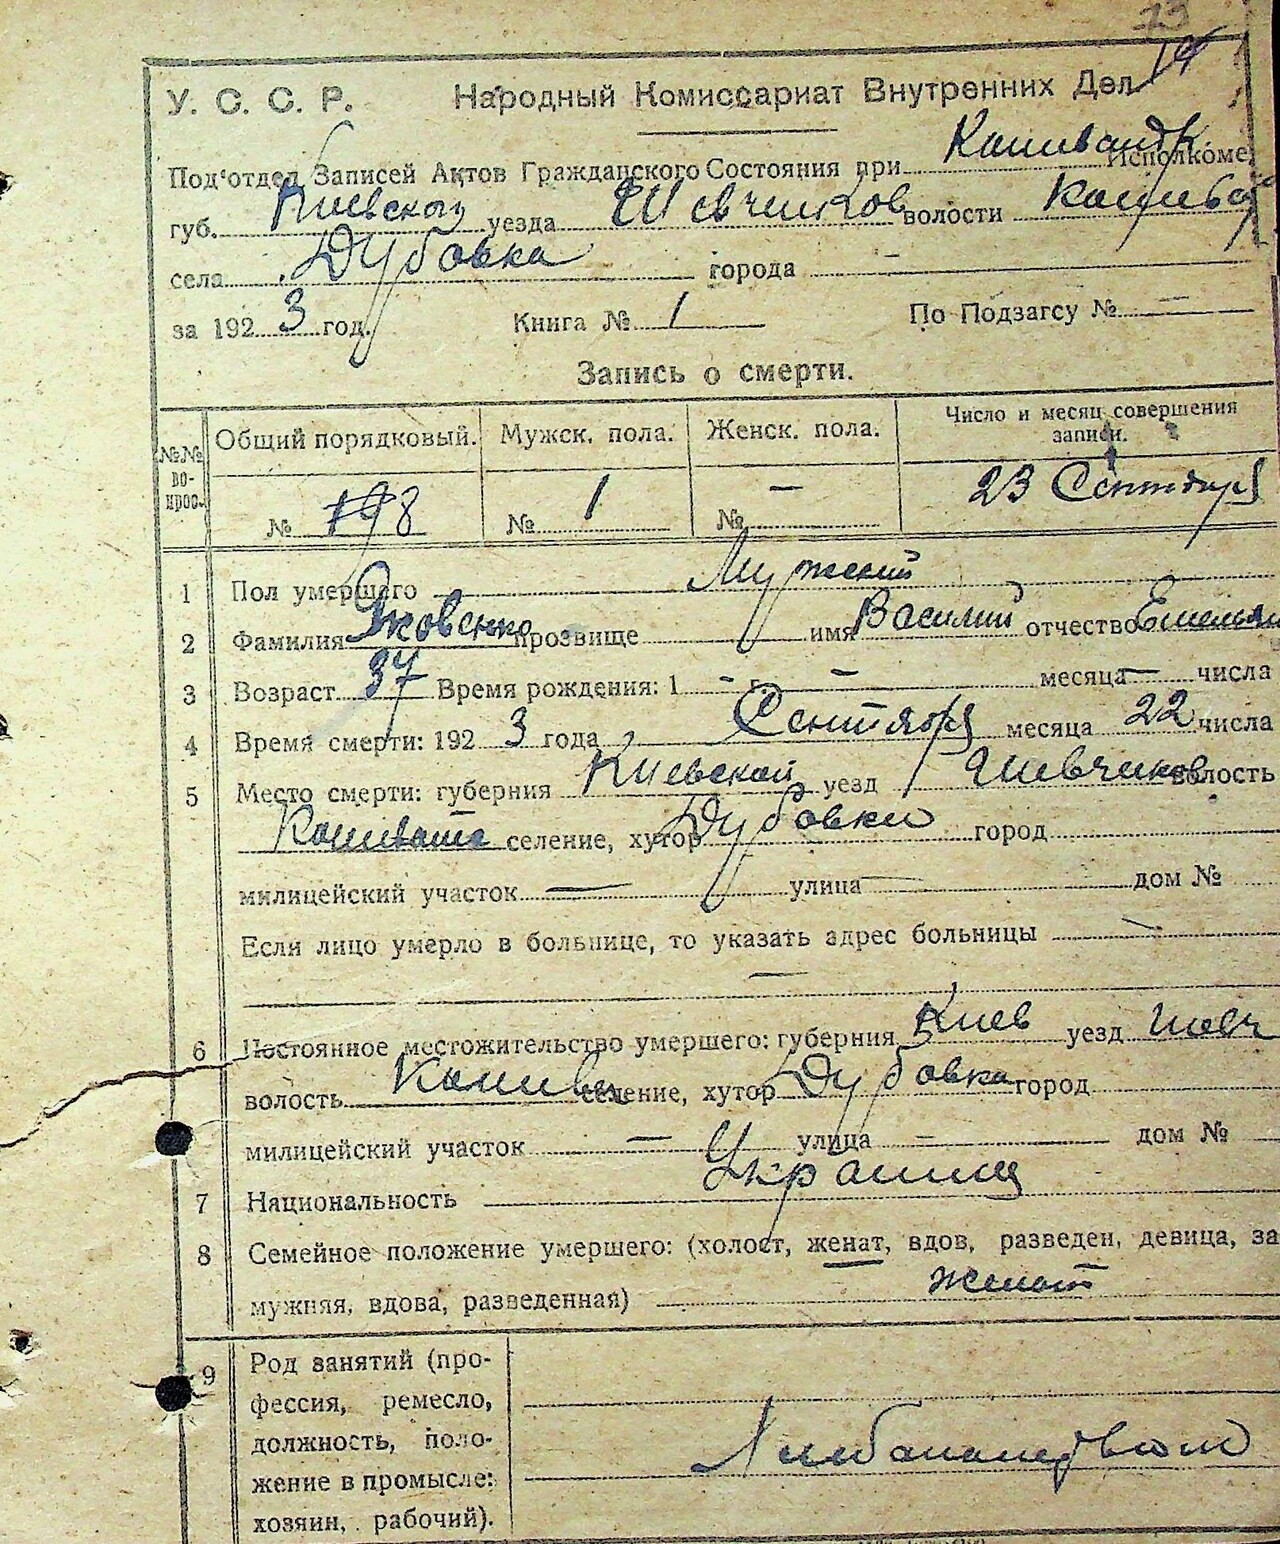 23
14
У. С. С. Р. Народный Комиссариат Внутренних Дел
Под'отдел Записей Актов Гражданского Состояния при Исполкоме
губ. Киевской уезда Шевченков волости
села Дубовка города —
за 1923 год. Книга № 1 По Подзагсу № —
Запись о смерти.
№№ во- прос. Общий порядковый. Мужск. пола. Женск. пола. Число и месяц совершения
записи.
№ 198 № 1 № — 23 Сентября
1 Пол умершего Мужский
2 Фамилия Яковенко прозвище имя Василий отчество Емельян
3 Возраст 37 Время рождения: 1 — г. — месяца — числа
4 Время смерти: 1923 года Сентября месяца 22 числа
5 Место смерти: губерния Киевской уезд Шевченков волость
селение, хутор Дубовки город
милицейский участок — улица — дом №
Если лицо умерло в больнице, то указать адрес больницы —
—
6 Постоянное местожительство умершего: губерния Киев уезд Шевч
волость селение, хутор Дубовка город
милицейский участок — улица — дом №
7 Национальность Украинц
8 Семейное положение умершего: (холост, женат, вдов, разведен, девица, за
мужняя, вдова, разведенная) женат
9 Род занятий (про-
фессия, ремесло,
должность, поло-
жение в промысле:
хозяин, рабочий).